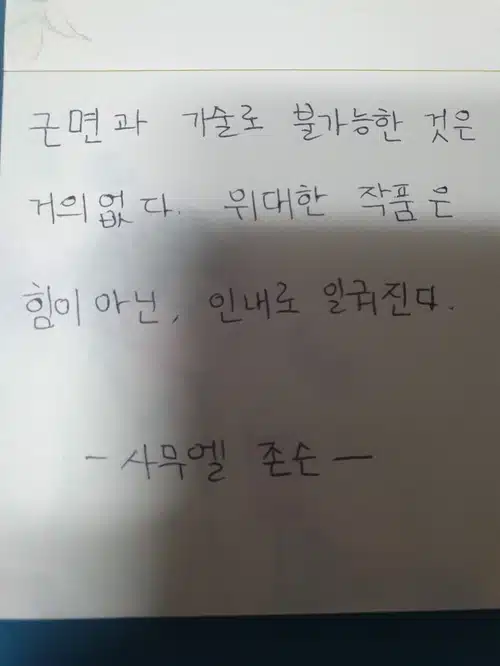 근면과 기술로 불가능한 것은
거의 없다. 위대한 작품은
힘이 아닌, 인내로 일궈진다.
- 사무엘 존슨 -